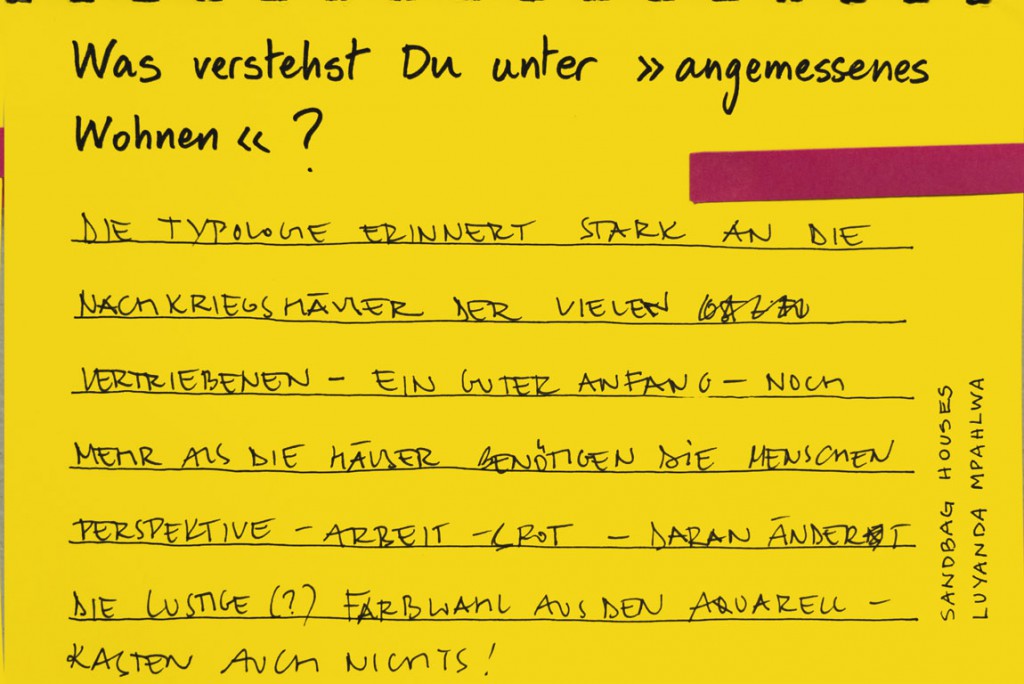 Was verstehst Du unter »angemessenes
Wohnen«?
DIE TYPOLOGIE ERINNERT STARK AN DIE
NACHKRIEGSHÄUSER DER VIELEN
VERTRIEBENEN – EIN GUTER ANFANG – NOCH
MEHR ALS DIE HÄUSER BENÖTIGEN DIE MENSCHEN
PERSPEKTIVE – ARBEIT – BROT – DARAN ÄNDERT
DIE LUSTIGE (?) FARBWAHL AUS DEN AQUARELL –
KASTEN AUCH NICHTS!
SANDBAG HOUSES
LUYANDA MPAHLWA